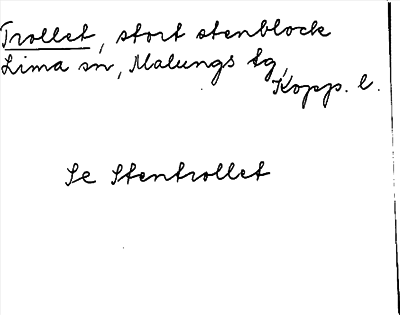 Trollet, stort stenblock
Lima sn, Malungs tg,
Kopp. l.
Se Stentrollet